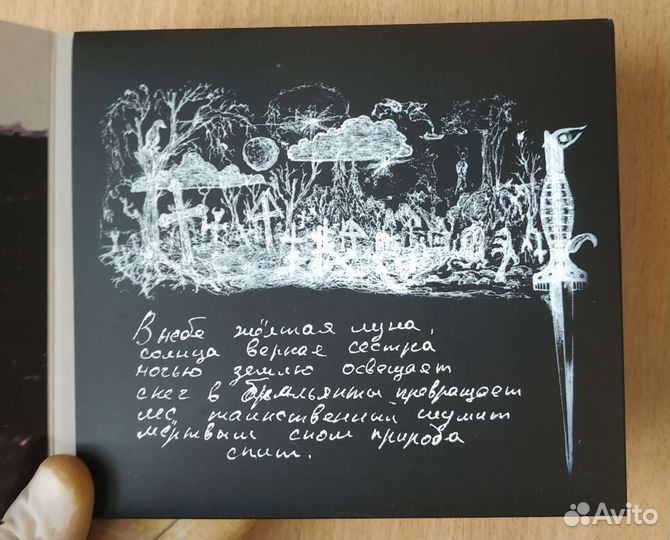 В небе жёлтая луна,
солнца верная сестра
ночью землю освещает
снег в бриллианты превращает
лес таинственный шумит
мёртвым сном природа
спит.
Avito